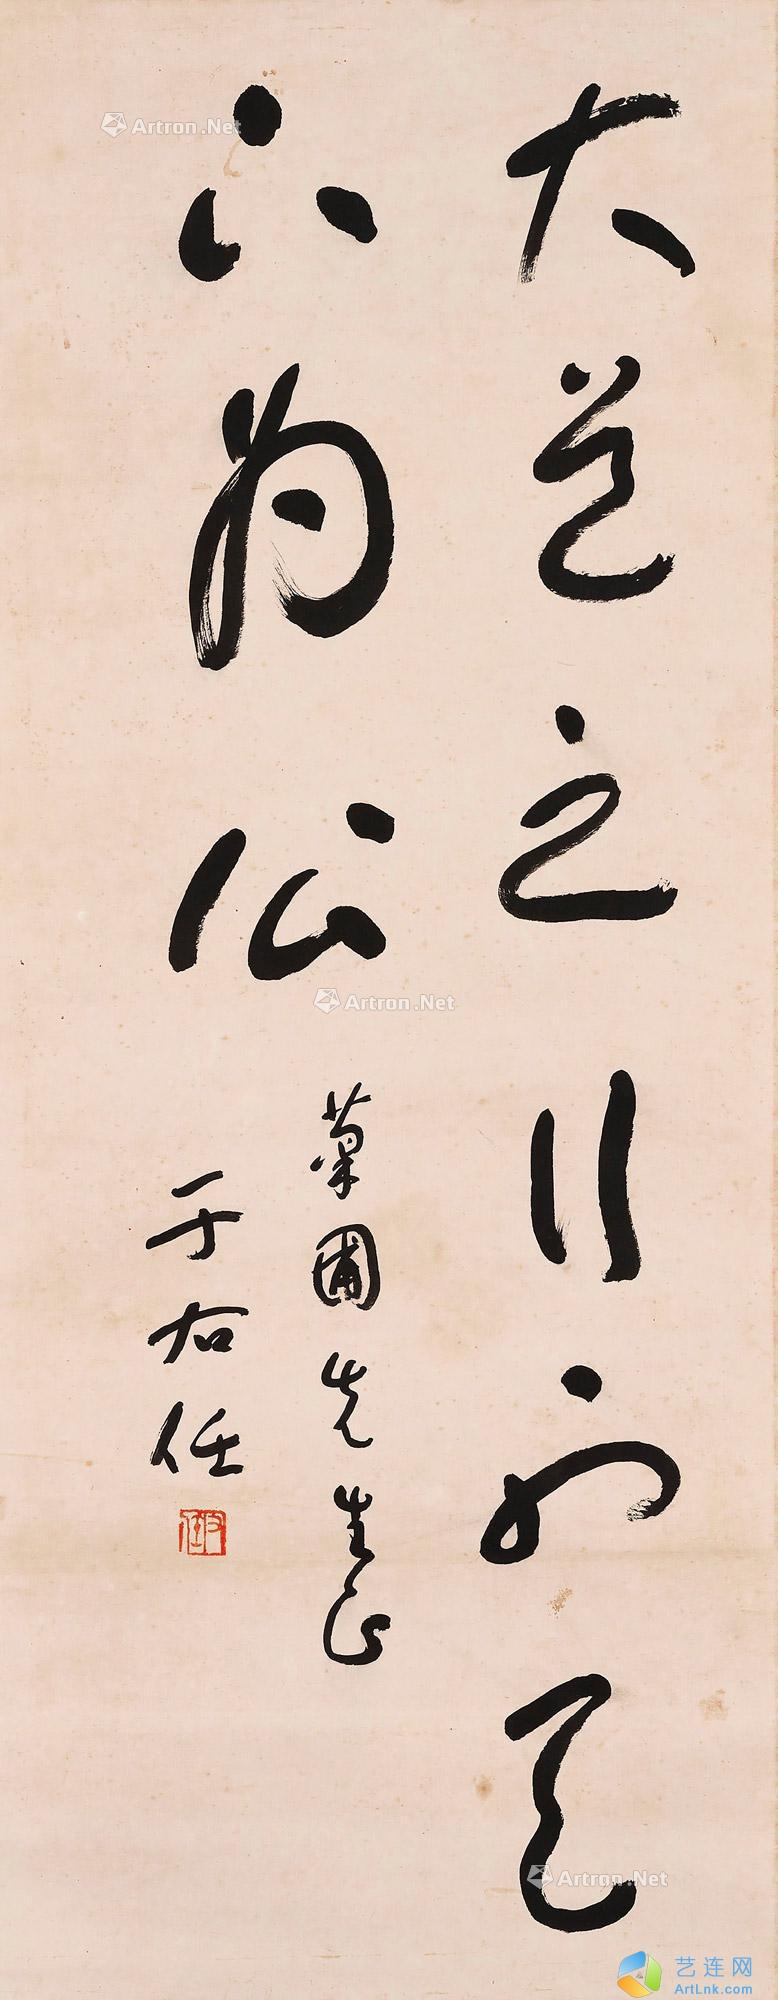 大道之行也天
下為公
菊圃先生正
于右任
右任
Artron.Net
Artron.Net
Artron.Net
艺连网
ArtLnk.com